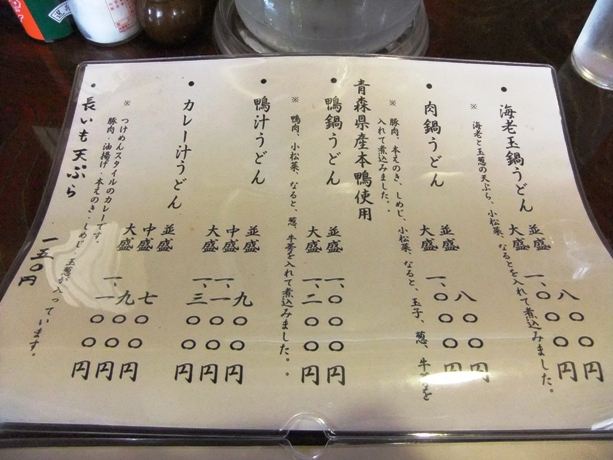 • 海老玉鍋うどん
並盛 八〇〇円
大盛 一、〇〇〇円
※ 海老と玉葱の天ぷら、小松菜、なるとを入れて煮込みました。
• 肉鍋うどん
並盛 八〇〇円
大盛 一、〇〇〇円
※ 豚肉、本えのき、しめじ、小松菜、なると、玉子、葱、牛蒡を
入れて煮込みました。
青森県産本鴨使用
• 鴨鍋うどん
並盛 一、〇〇〇円
大盛 一、二〇〇円
※ 鴨肉、小松菜、なると、葱、牛蒡を入れて煮込みました。
• 鴨汁うどん
並盛 九〇〇円
中盛 一、一〇〇円
大盛 一、三〇〇円
• カレー汁うどん
並盛 七〇〇円
中盛 九〇〇円
大盛 一、一〇〇円
※ つけめんスタイルのカレーです。
豚肉・油揚げ・本えのき・しめじ・玉葱が入っています。
• 長いも天ぷら 一五〇円